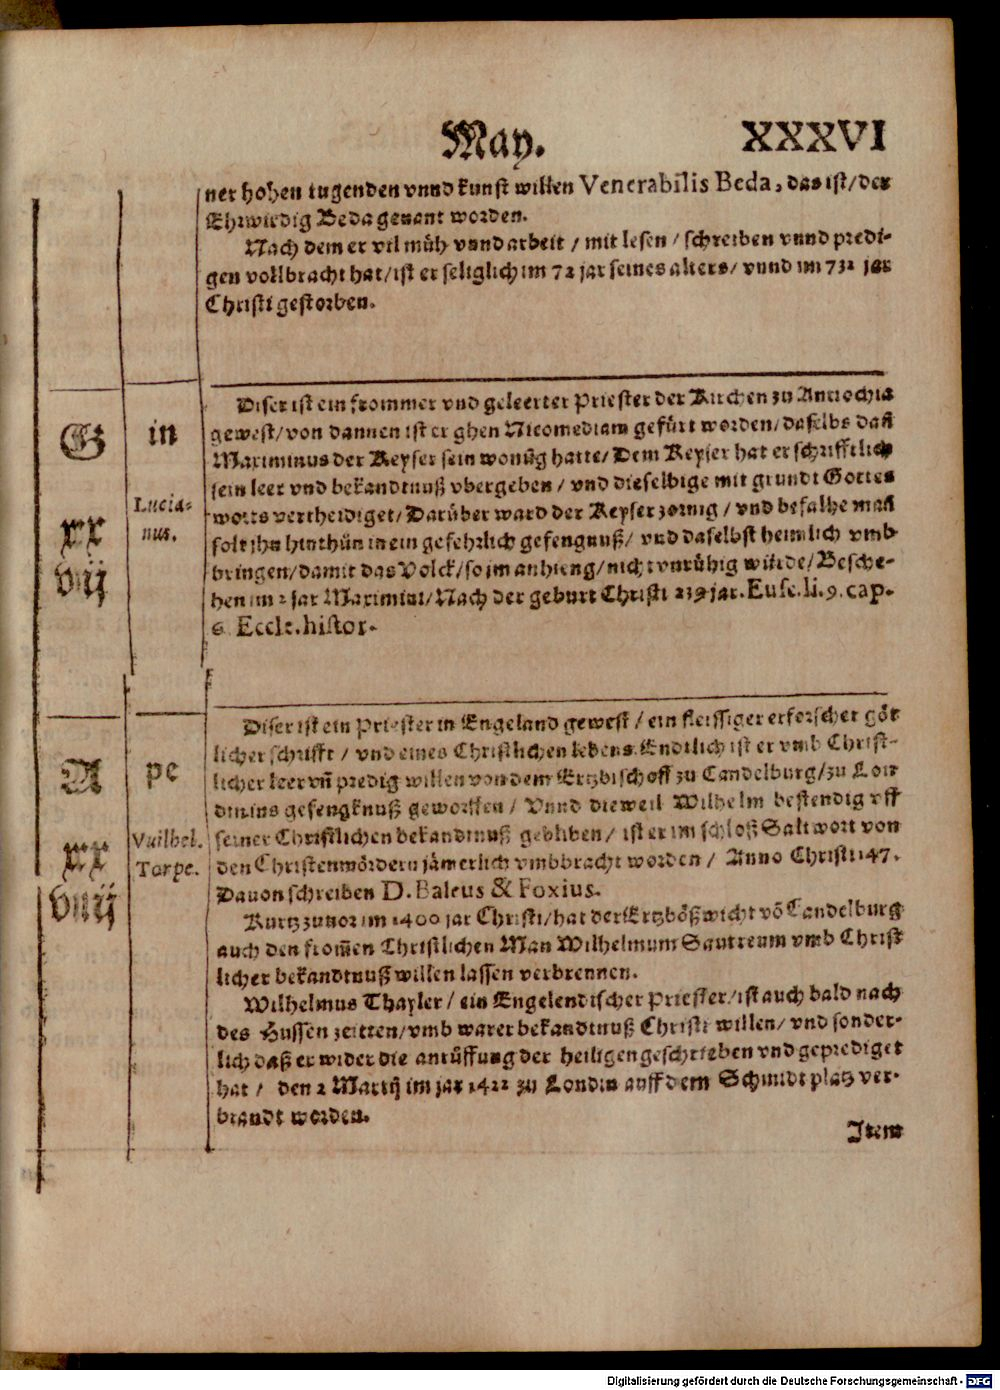 May. XXXVI
ner hohen tugenden vnnd kunst willen Venerabilis Beda, das ist/der
Ehrwirdig Beda genant worden.
Nach dem er vil müh vnnd arbeit / mit lesen / schreiben vnnd predi-
gen vollbracht hat/ist er seliglich im 72 jar seines alters/ vnnd im 732 jar
Christi gestorben.
Diser ist ein frommer vnd geleerter Priester der Kirchen zu Antiochia
G in
gewest/von dannen ist er ghen Nicomediam gefürt worden/daselbs dañ
Maximinus der Keyser sein wonũg hatte/Dem Keyser hat er schrifftlich
sein leer vnd bekandtnuß vbergeben / vnd dieselbige mit grundt Gottes
Lucia-
worts vertheidiget/Darüber ward der Keyser zornig / vnd befalhe mañ
xx nus.
solt jhn hinthün in ein gefehrlich gefengnuß/ vnd daselbst heimlich vmb
bringen/damit das Volck/so jm anhieng/nicht vnrühig würde/Besche-
vij
hen im 2 jar Maximini/Nach der geburt Christi 239 jar. Euse.li.9.cap.
6. Eccle.histor.
Diser ist ein Priester in Engeland gewest / ein fleissiger erforscher göt
licher schrifft / vnd eines Christlichen lebens. Endtlich ist er vmb Christ-
A pe
licher leer vñ predig willen von dem Ertzbischoff zu Candelburg/zu Lon
din ins gefengknuß geworffen / Vnnd dieweil Wilhelm bestendig vff
Vuilhel.
seiner Christlichen bekandtnuß gebliben / ist er im schloß Saltwort von
xx Torpe.
den Christenmördern jämerlich vmbbracht worden / Anno Christi 147.
Dauon schreiben D. Baleus & Foxius.
viij
Kurtz zuuor im 1400 jar Christi/hat der Ertzbößwicht võ Candelburg
auch den from̃en Christlichen Man Wilhelmum Sautreum vmb Christ
licher bekandtnuß willen lassen verbrennen.
Wilhelmus Thayler / ein Engelendischer Priester/ist auch bald nach
des Hussen zeitten/vmb warer bekandtnuß Christi willen/ vnd sonder-
lich daß er wider die anrüffung der heiligen geschrieben vnd geprediget
hat / den 2 Martij im jar 1422 zu Londin auff dem Schmidt platz ver-
brandt worden.
Item
Digitalisierung gefördert durch die Deutsche Forschungsgemeinschaft - DFG